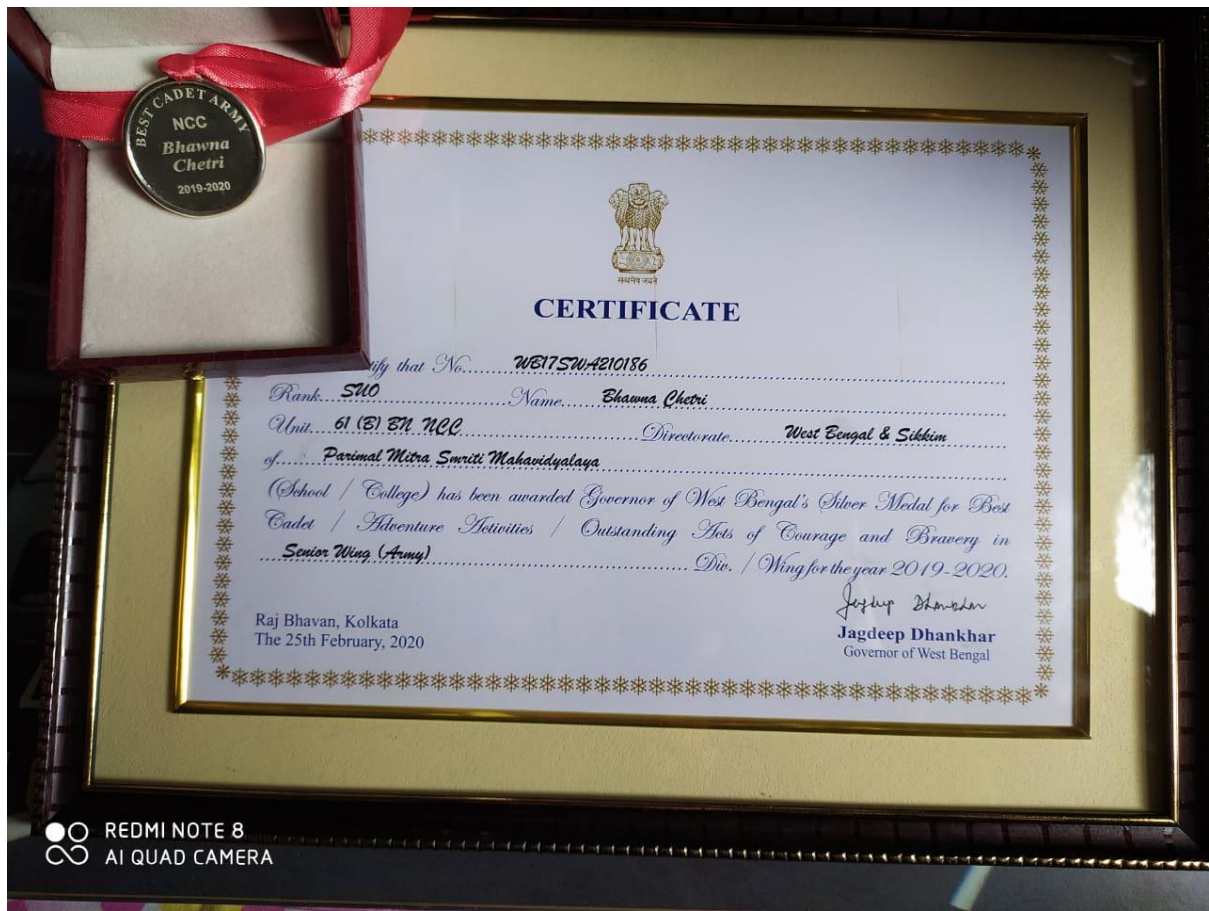 BEST CADET ARMY
NCC
Bhawna
Chetri
2019-2020
सत्यमेव जयते
CERTIFICATE
tify that No. WB17SWA210186
Rank SUO Name Bhawna Chetri
Unit 61 (B) BN NCC Directorate West Bengal & Sikkim
of Parimal Mitra Smriti Mahavidyalaya
(School / College) has been awarded Governor of West Bengal's Silver Medal for Best
Cadet / Adventure Activities / Outstanding Acts of Courage and Bravery in
Senior Wing (Army) Div. / Wing for the year 2019-2020.
Jagdeep Dhankhar
Raj Bhavan, Kolkata
The 25th February, 2020
Jagdeep Dhankhar
Governor of West Bengal
REDMI NOTE 8
AI QUAD CAMERA